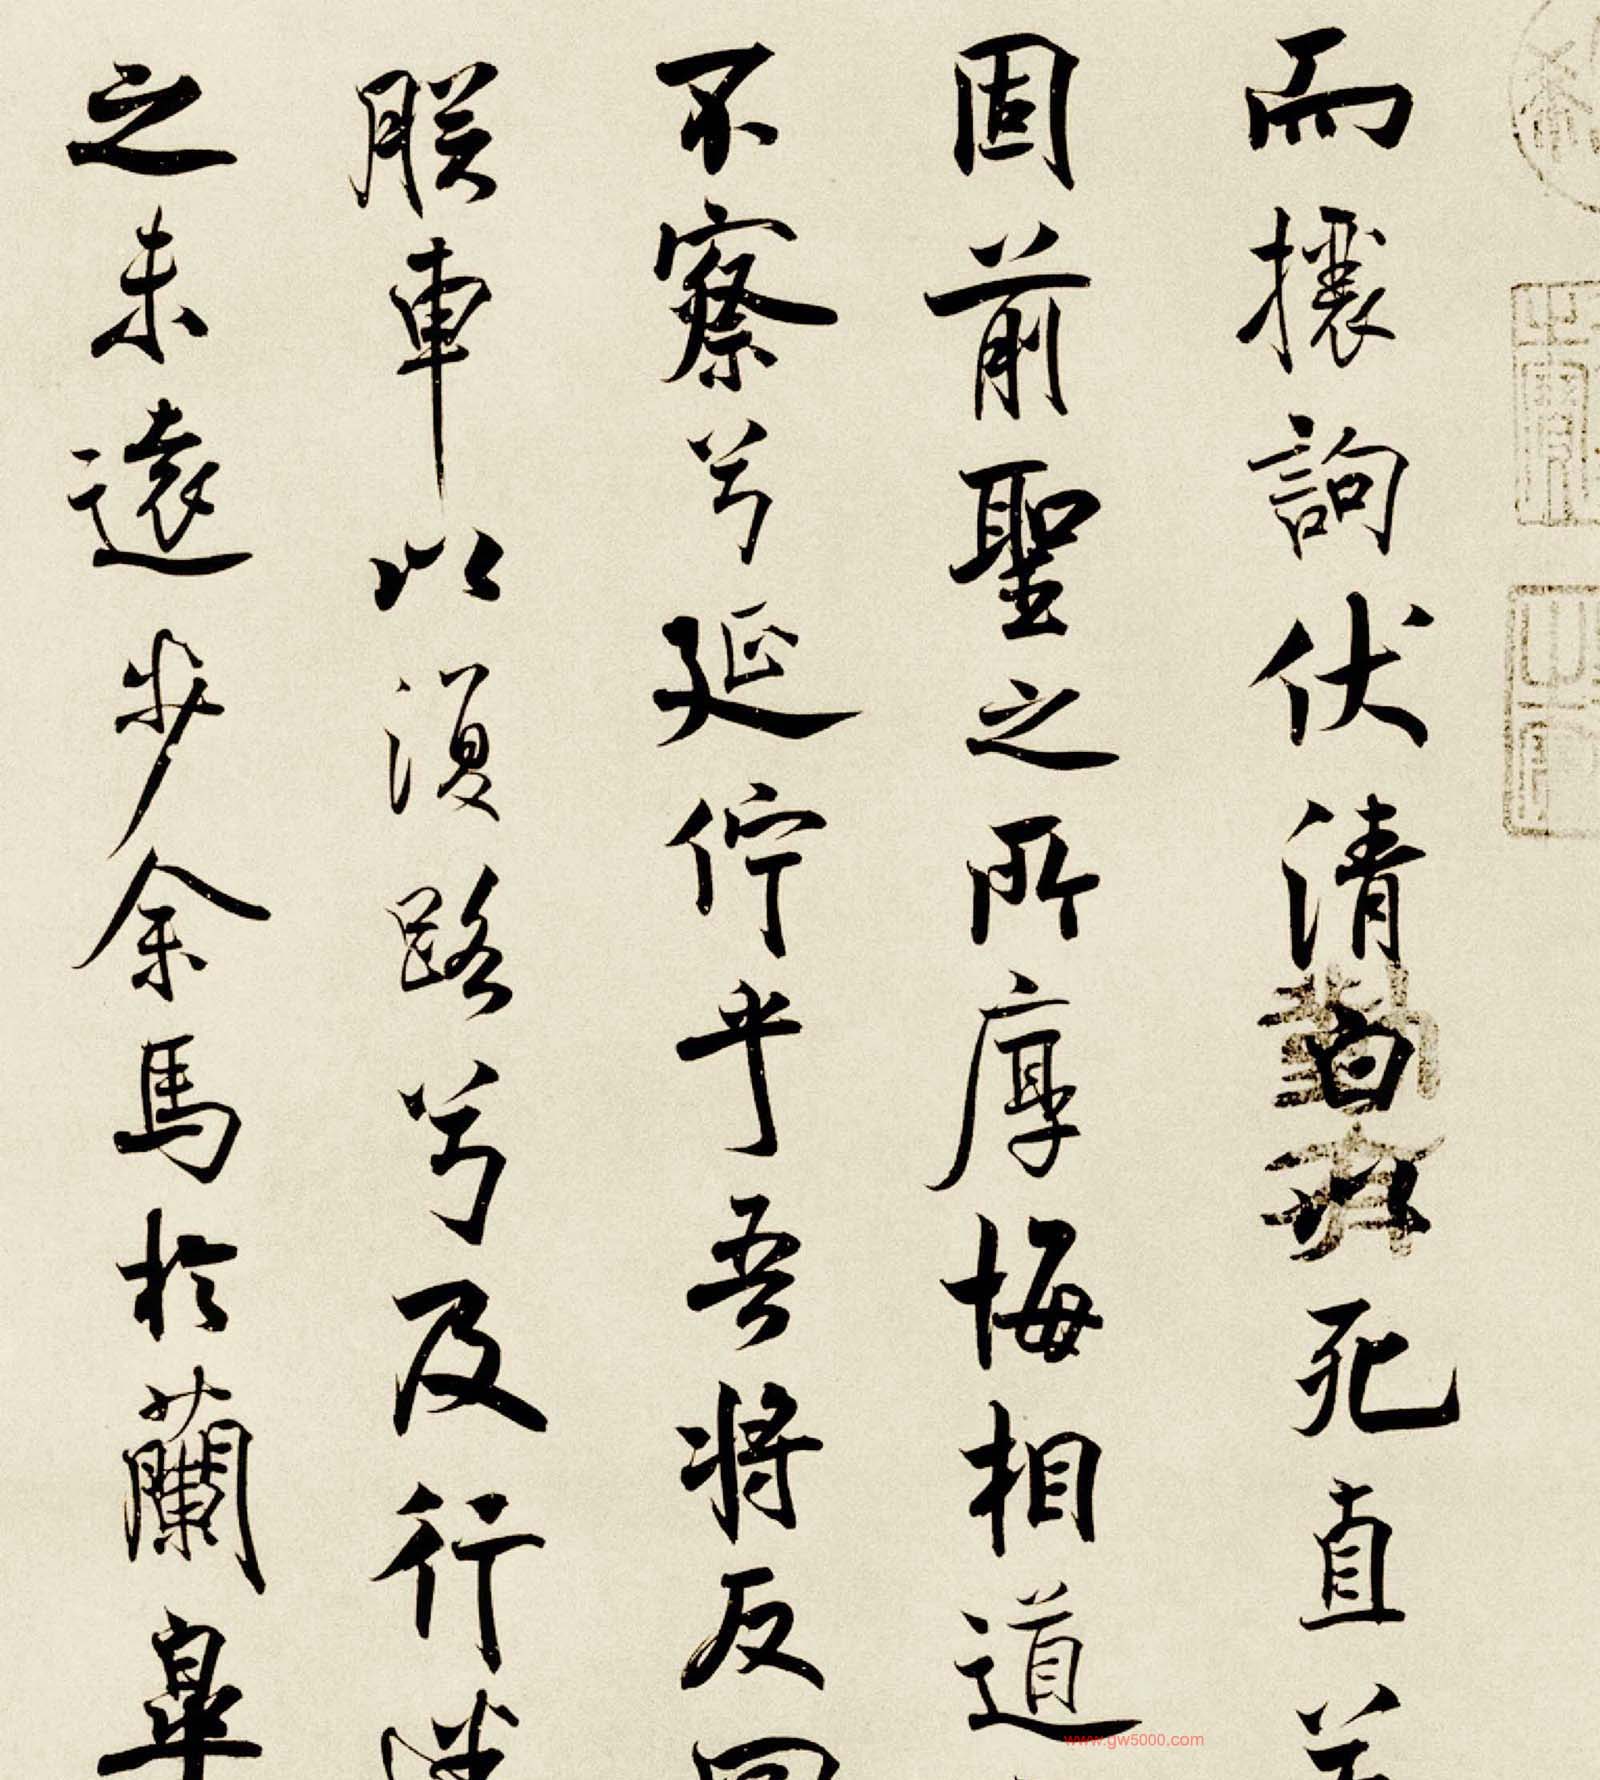 而攘詢伏清白以死直兮
固前聖之所厚悔相道
不察兮延佇乎吾將反回
朕車以復路兮及行迷
之未遠步余馬於蘭皐
www.gw5000.com